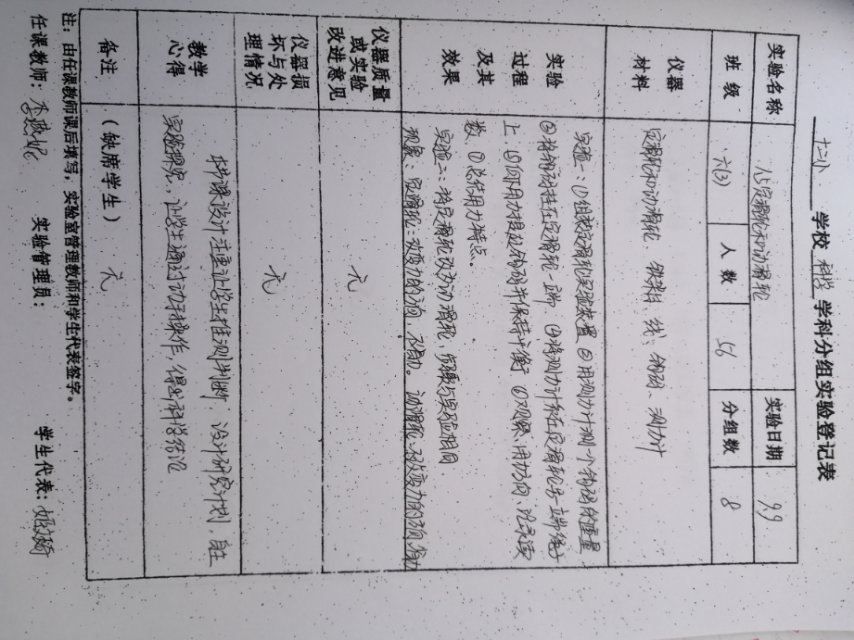 十二小 学校 科学 学科分组实验登记表
实验名称 1.5定滑轮和动滑轮 实验日期 9.9
班级 六(3) 人数 56 分组数 8
仪器材料 定滑轮和动滑轮 铁架台 线 钩码、测力计
实验过程及其效果
实验一：①组装定滑轮实验装置 ②用测力计测一个钩码的重量，
③将钩码挂在定滑轮一端 ④将测力计挂在定滑轮另一端绳
上，⑤向下用力提起钩码并保持平衡 ⑥观察用力方向，记录读
数。⑦总结用力特点。
实验二：将定滑轮改为动滑轮，步骤与实验一相同
现象：定滑轮：改变力的方向，不省力。动滑轮：不改变力的方向，省力
仪器质量或实验改进意见 无
仪器损坏与处理情况 无
教学心得
本节课设计注重让学生推测判断，设计研究计划，自主
实验探究，让学生通过动手操作，得出科学结论
备注 （缺席学生） 无
注：由任课教师课后填写，实验室管理教师和学生代表签字。
任课教师： 实验管理员： 学生代表：